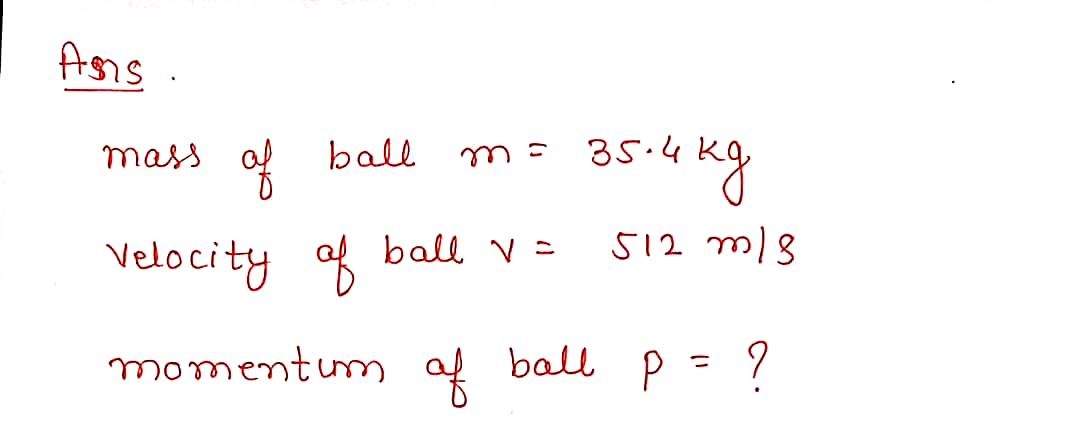 Ans.
mass of ball m = 35.4 kg
Velocity of ball v = 512 m/s
momentum of ball p = ?